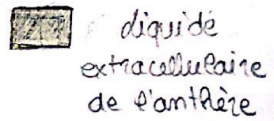 liquide
extracellulaire
de l'anthère